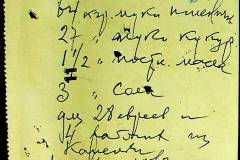 64 кгр. муки пшенич
27 " муки кукур.
1 1/2 " постн. масла
3 " соли
для 28 евреев и
14 рабочих из
Каменки